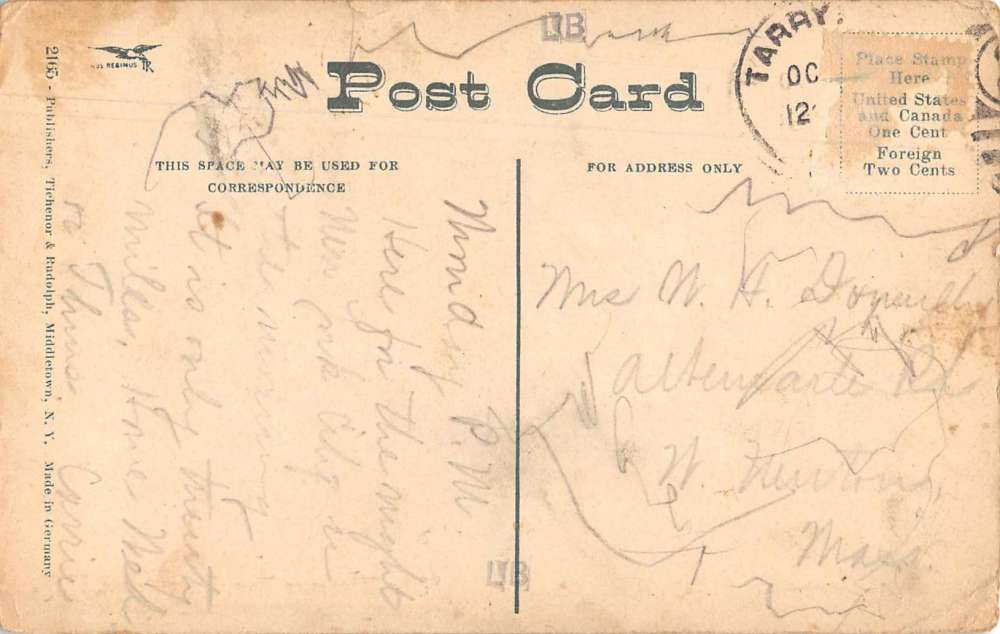 LB
Post Card
TARRY
OC
12
Place Stamp
Here
United States
and Canada
One Cent
Foreign
Two Cents
THIS SPACE MAY BE USED FOR
CORRESPONDENCE
FOR ADDRESS ONLY
Monday P.M.
Here for the night
New York City in
the morning
It is only twenty
miles, Home Wed
or Thurs. Carrie
Mrs W. H. Donnelly
Albemarle Rd
W. Newton,
Mass.
LB
2165 - Publishers, Tichenor & Rudolph, Middletown, N. Y. Made in Germany